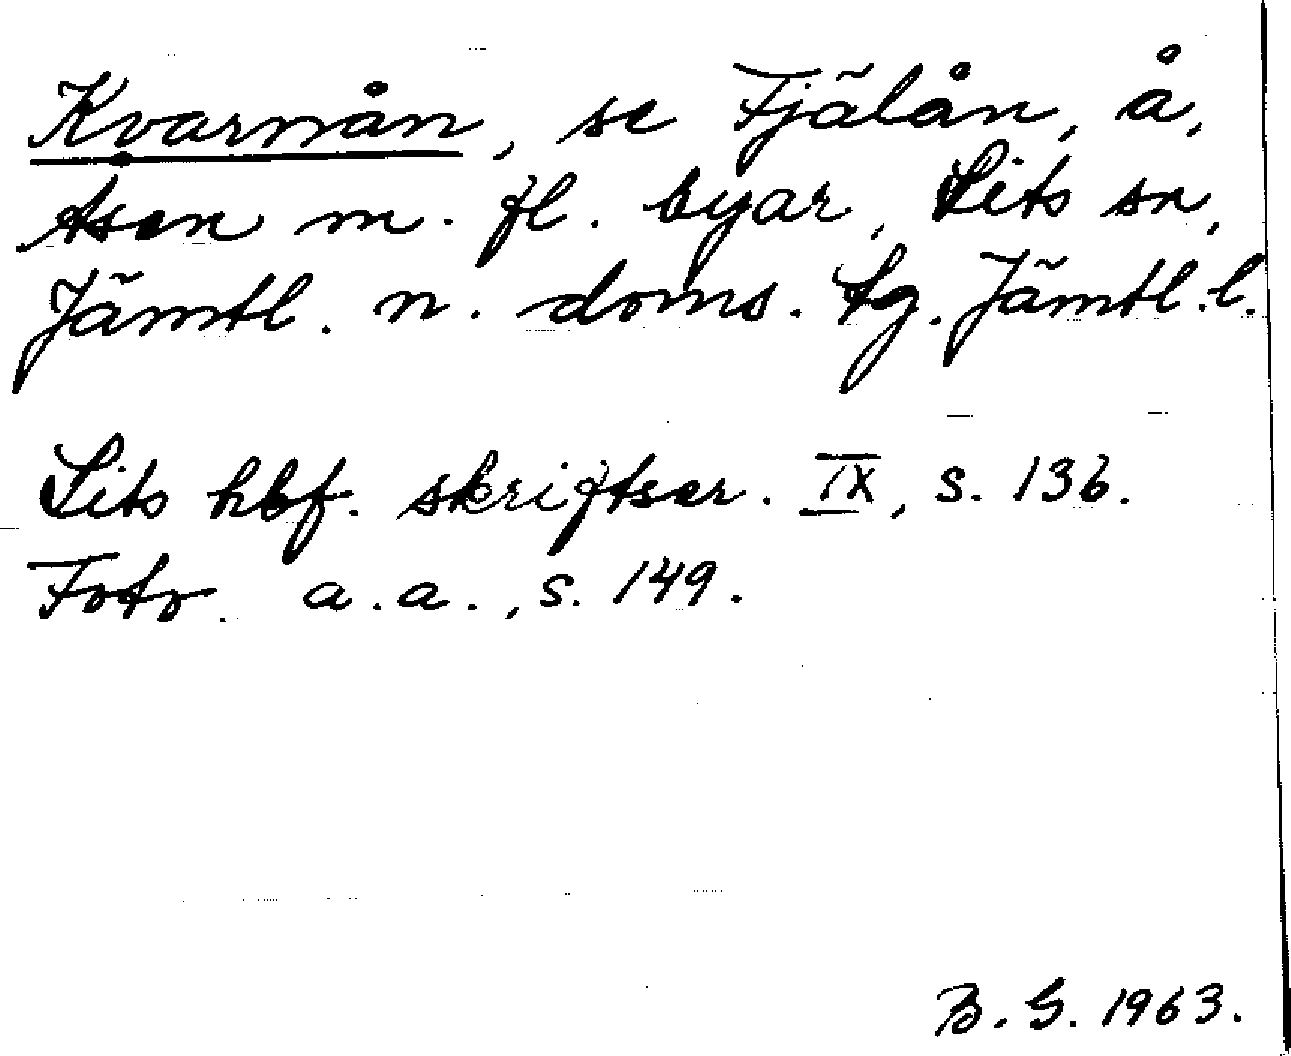 Kvarnån, se Fjälån, å,
Åsen m. fl. byar, Lits sn,
Jämtl. n. doms. tg. Jämtl. l.
Lits hbf. skriftser. IX, s. 136.
Foto. a. a., s. 149.
B. G. 1963.